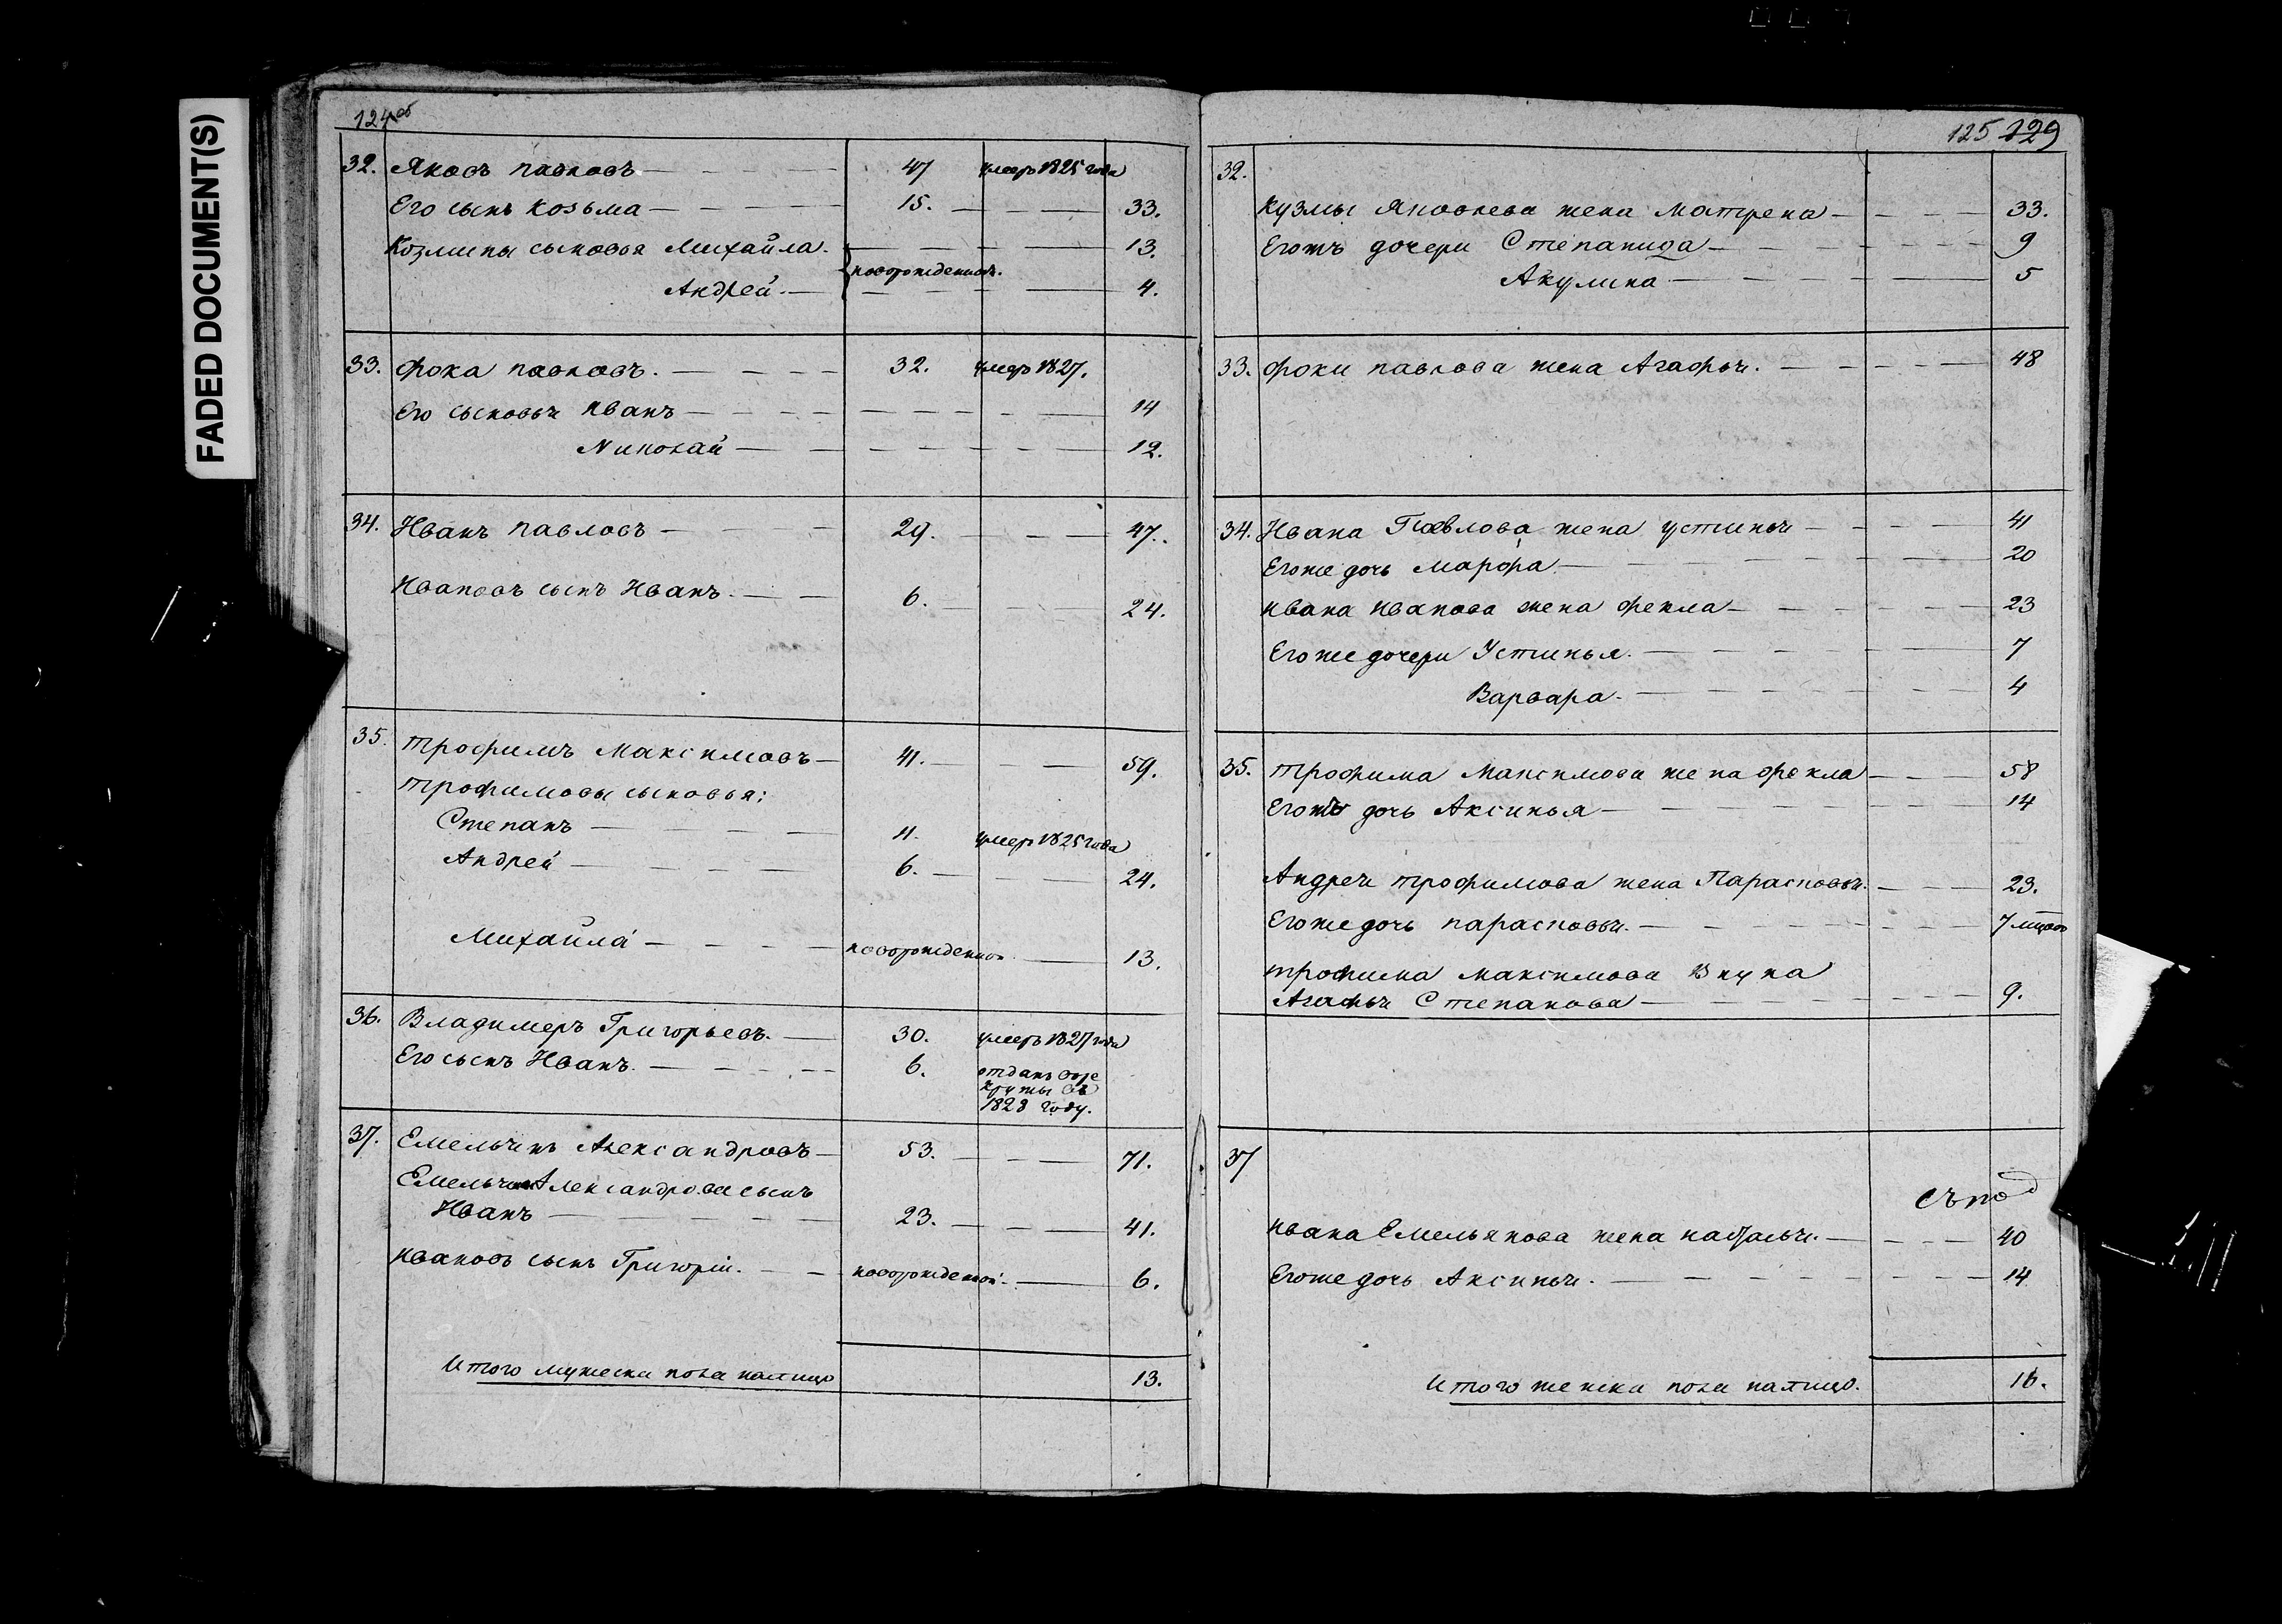 FADED DOCUMENT(S)
124об
32. Яковъ павловъ 47 умеръ 1825 года
Его сынъ козьма 15. 33.
Козмины сыновья Михайла 13.
новорожденные
Андрей 4.
33. Фока павловъ. 32. умеръ 1827.
Его сыновья иванъ 14
Николай 12.
34. Иванъ павловъ 29. 47.
Ивановъ сынъ Иванъ. 6. 24.
35. трофимъ максимовъ 41. 59.
трофимовы сыновья:
Степанъ 11. умеръ 1825 года
Андрей 6. 24.
Михайла новорожденной 13.
36. Владимеръ Григорьевъ. 30. умеръ 1827 года
Его сынъ Иванъ. 6. отданъ въ ре
круты въ
1828 году.
37. Емельянъ Александровъ 53. 71.
Емельяна Александрова сынъ
Иванъ 23. 41.
ивановъ сынъ Григорiй. новорожденной 6.
Итого мужеска пола налицо 13.
125 129
32.
кузмы яковлева жена матрена 33.
Егожъ дочери Степанида 9
Акулина 5
33. фоки павлова жена Агафья. 48
34. Ивана Павлова жена устинья 41
Егоже дочь марфа 20
ивана иванова жена фекла 23
Егоже дочери Устинья. 7
Варвара. 4
35. трофима максимова жена фекла 58
Егожъ дочь Аксинья 14
Андрея трофимова жена Парасковья. 23.
Егоже дочь парасковья. 7 мцовъ
трофима максимова внука
Агафья Степанова 9.
37
ивана Емельянова жена наталья. 40
Егоже дочь Аксинья. 14
Итого женска пола налицо. 16.